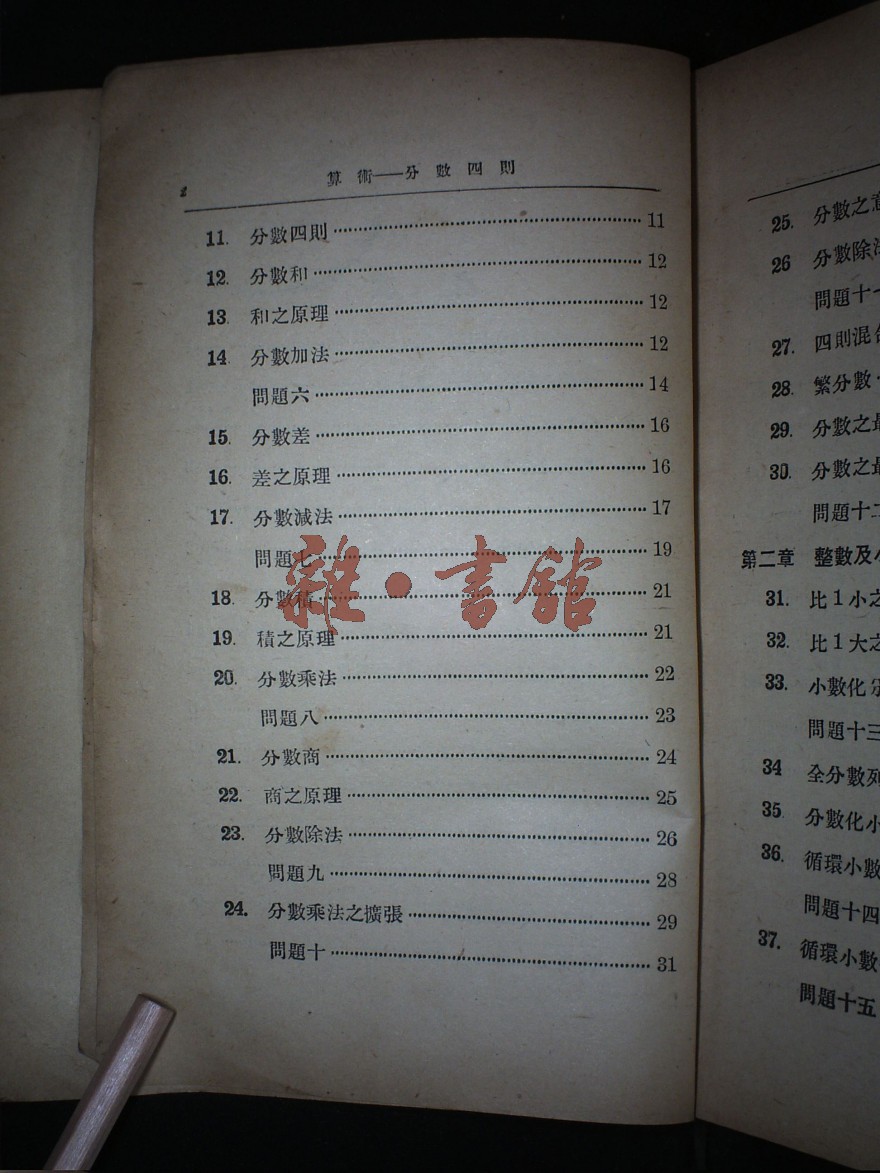 2
算術——分數四則
11. 分數四則 11
12. 分數和 12
13. 和之原理 12
14. 分數加法 12
問題六 14
15. 分數差 16
16. 差之原理 16
17. 分數減法 17
問題七 19
18. 分數積 21
19. 積之原理 21
20. 分數乘法 22
問題八 23
21. 分數商 24
22. 商之原理 25
23. 分數除法 26
問題九 28
24. 分數乘法之擴張 29
問題十 31
雜·書館
25. 分數之意
26 分數除法
問題十一
27. 四則混合
28. 繁分數
29. 分數之最
30. 分數之最
問題十二
第二章 整數及小
31. 比1小之
32. 比1大之
33. 小數化
問題十三
34 全分數列
35 分數化小
36. 循環小數
問題十四
37. 循環小數
問題十五